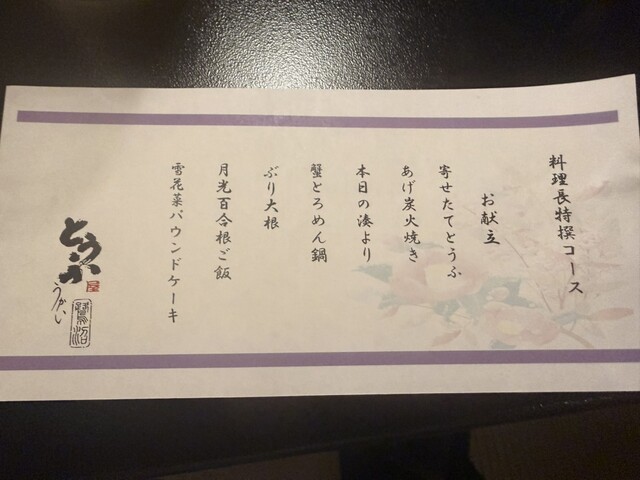 料理長特撰コース
お献立
寄せたてとうふ
あげ炭火焼き
本日の湊より
蟹とろめん鍋
ぶり大根
月光百合根ご飯
雪花菜パウンドケーキ
とうふ
屋
うかい
鷺沼